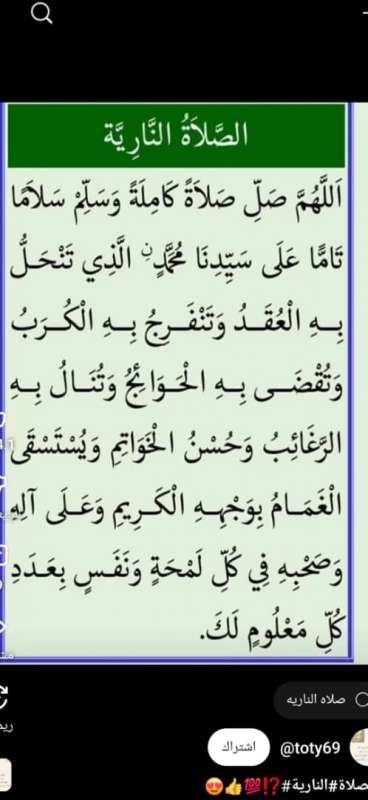 الصَّلاَةُ النَّارِيَّة
اَللَّهُمَّ صَلِّ صَلاَةً كَامِلَةً وَسَلِّمْ سَلاَمًا
تَامًّا عَلَى سَيِّدِنَا مُحَمَّدٍنِ الَّذِي تَنْحَلُّ
بِهِ الْعُقَدُ وَتَنْفَرِجُ بِهِ الْكُرَبُ
وَتُقْضَى بِهِ الْحَوَائِجُ وَتُنَالُ بِهِ
الرَّغَائِبُ وَحُسْنُ الْخَوَاتِمِ وَيُسْتَسْقَى
الْغَمَامُ بِوَجْهِهِ الْكَرِيمِ وَعَلَى آلِهِ
وَصَحْبِهِ فِي كُلِّ لَمْحَةٍ وَنَفَسٍ بِعَدَدِ
كُلِّ مَعْلُومٍ لَكَ.
صلاه الناريه
@toty69 اشتراك
صلاة#النارية#⁉️💯👍😍